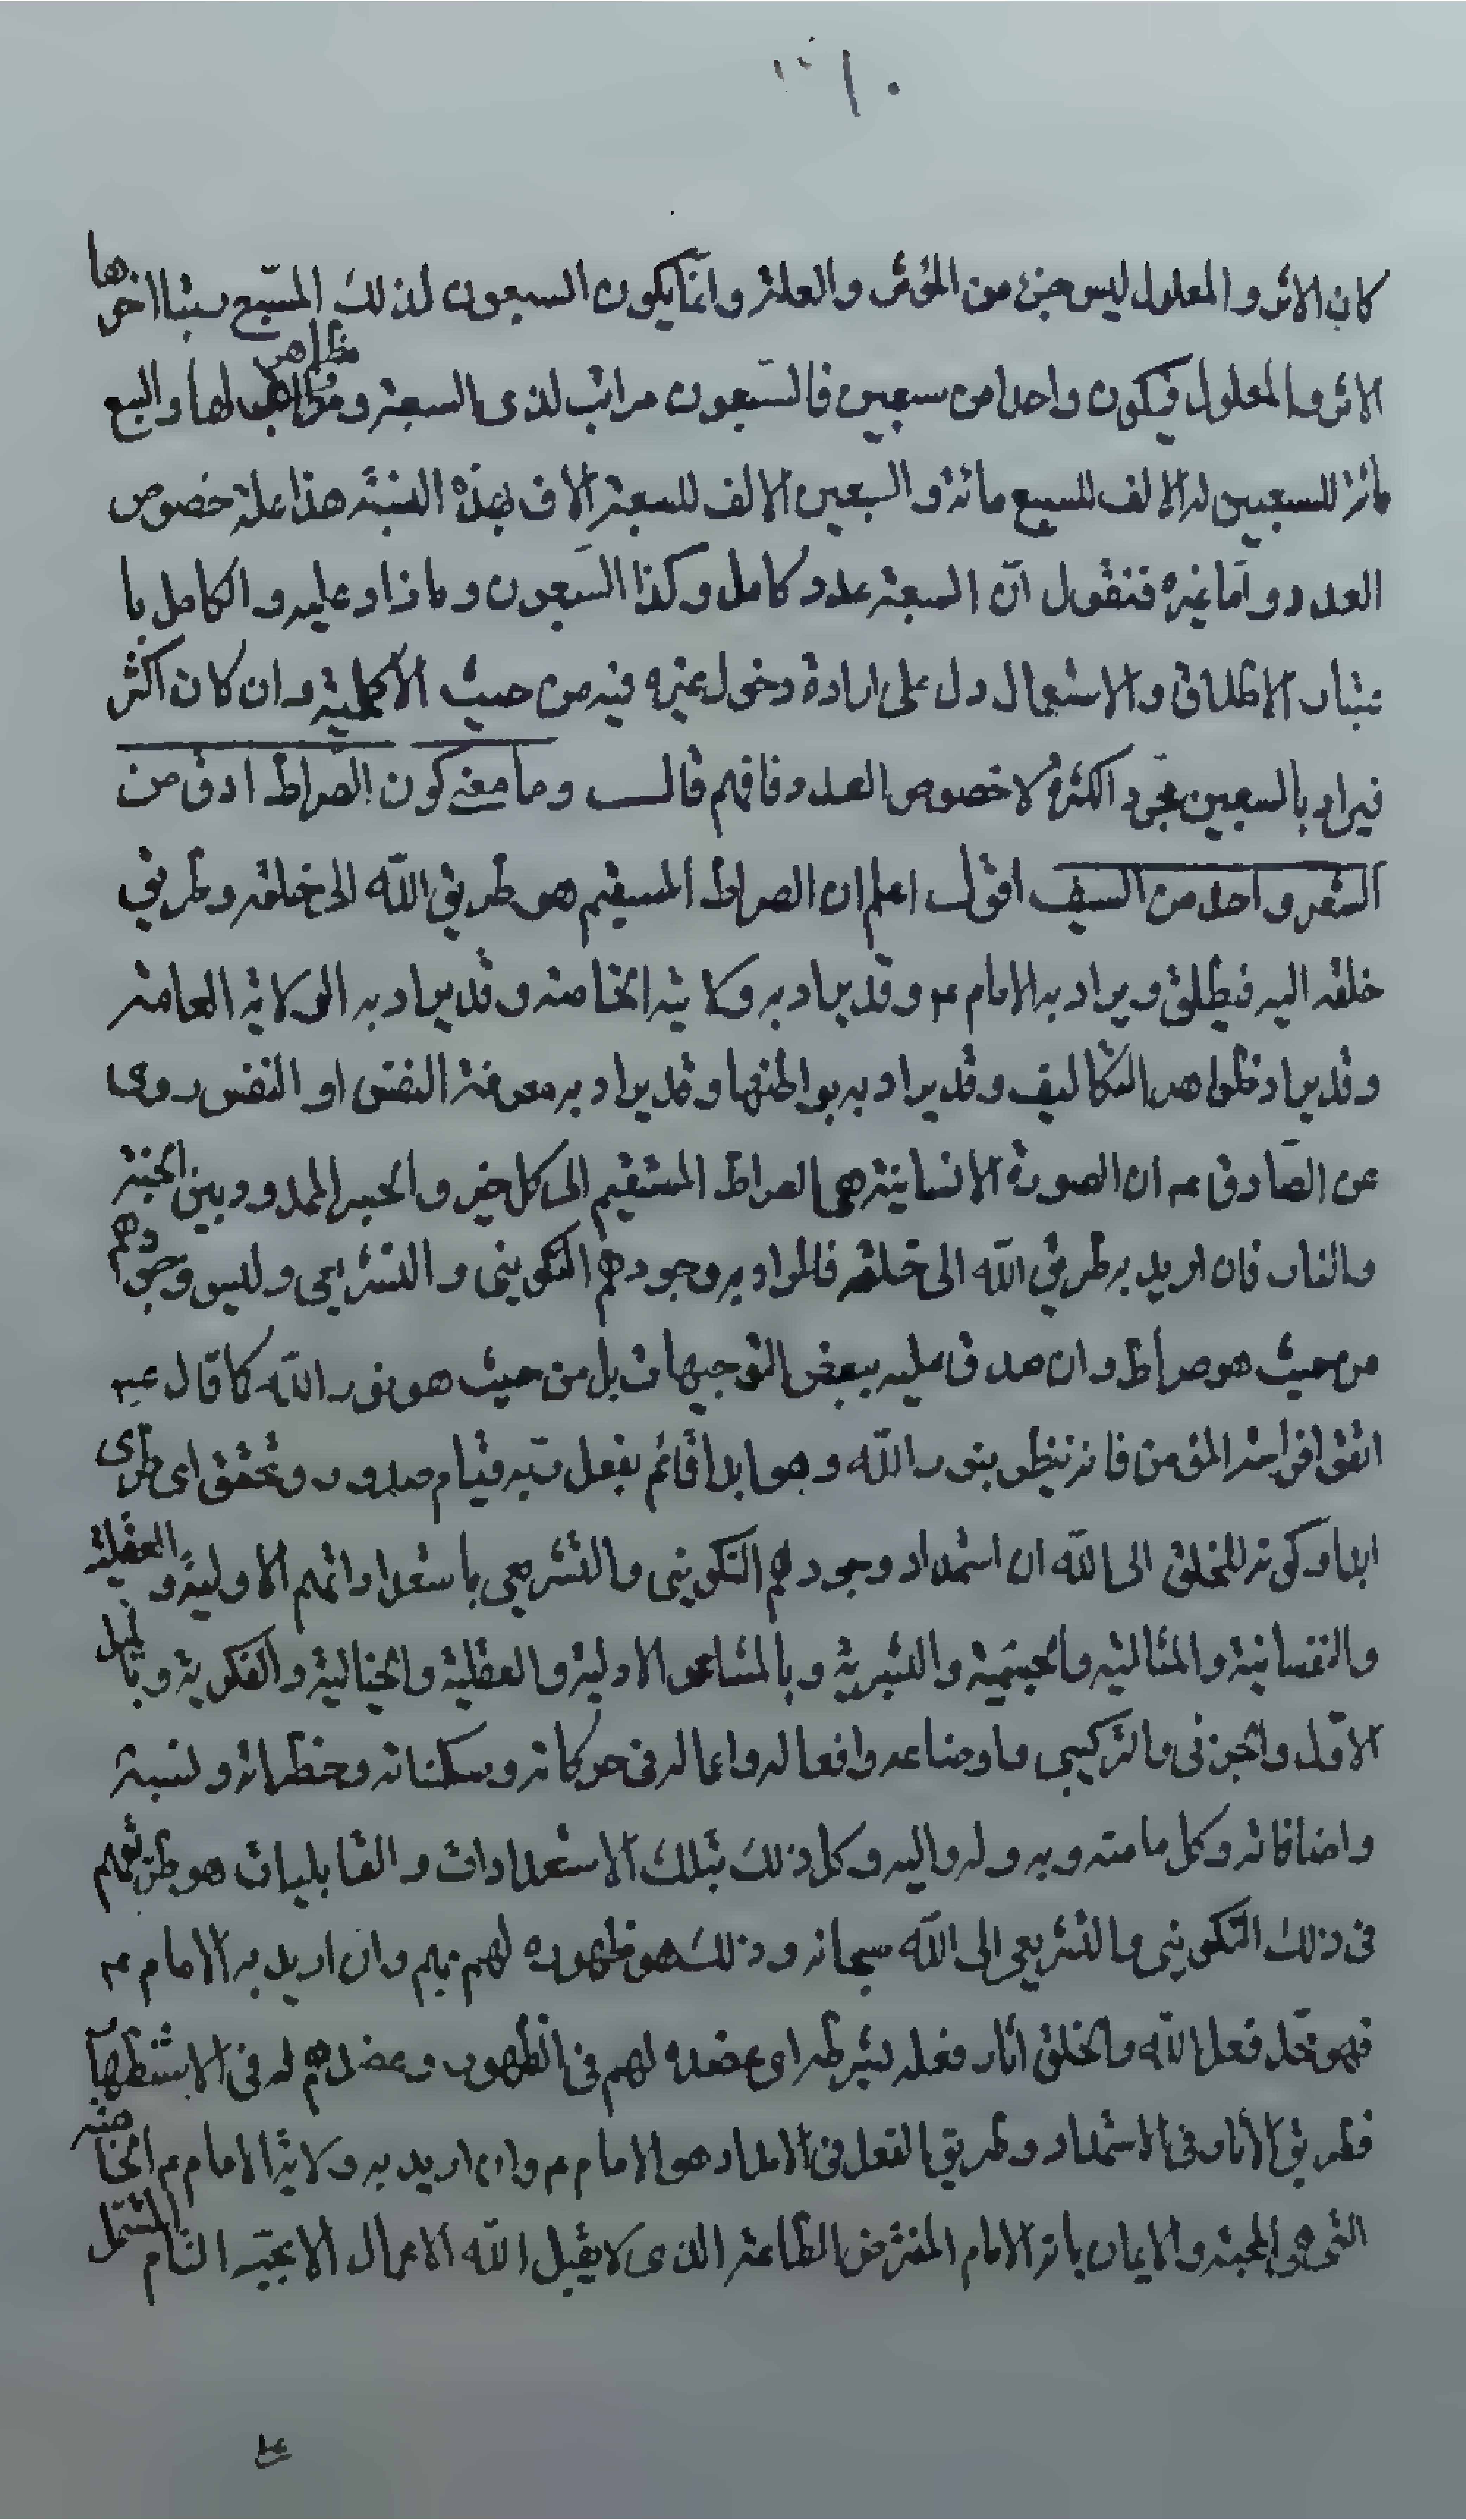 ١٠
كان الاثر والمعلول ليس جزء من المؤثر والعلة وانما يكون السبعون لذلك المسبع سببا اخرها
الاثر والمعلول فيكون واحدا من سبعين فالسبعون مراتب لذى السبعة و مظاهر لها والسبع
مائة للسبعين له الالف للسبع مائة و السبعين الالف للسبعة الاف بهذه النسبة هذا علة خصوص
العدد واما غيره فنقول ان السبعة عدد كامل وكذا السبعون وما زاد عليه و الكامل با
عتبار الاطلاق والاستعمال دل على ارادة دخول غيره فيه من حيث الاكملية وان كان اكثر
فيراد بالسبعين مجرد الكثرة لا خصوص العدد فافهم قال وما معنى كون الصراط ادق من
الشعر واحد من السيف اقول اعلم ان الصراط المستقيم هو طريق الله الى خلقه وطريق
خلقه اليه فيطلق ويراد به الامام عم وقد يراد به ولايته الخاصة وقد يراد به الولاية العامة
وقد يراد ظواهر التكاليف وقد يراد به بواطنها وقد يراد به معرفة النفس او النفس روى
عن الصادق عم ان الصورة الانسانية هى الصراط المستقيم الى كل خير والجسر الممدود بين الجنة
والنار فان اريد به طريق الله الى خلقه فالمراد به وجودهم التكوينى والتشريعى وليس وجودهم
من حيث هو صراط وان صدق عليه ببعض التوجيهات بل من حيث هو نور الله كما قال عم
اتقوا فراسة المؤمن فانه ينظر بنور الله وهو ابدا قائم بفعل ربه قيام صدور وتحقق اى طرى
ابدا وكونه للخلق الى الله ان استمداد وجودهم التكوينى والتشريعى باستعداداتهم الاولية و العقلية
والنفسانية والمثالية والجسمية والبشرية وبالمشاعر الاولية والعقلية والخيالية والفكرية وبالعمل
الاول والجزئى والتركيبى واوضاعه وافعاله واعماله فى حركاته وسكناته وخطراته ونسبة
واضافاته وكل ما منه وبه وله واليه وكل ذلك بتلك الاستعدادات والقابليات هو طريقهم
فى ذلك التكوينى والتشريعى الى الله سبحانه وذلك هو ظهوره لهم بهم وان اريد به الامام عم
فهو محل فعل الله والخلق اثار فعله بشرطه اى عضده لهم فى الظهور وعضدهم له فى الا
فطريق الاثار فى الاستمداد وطريق الفعل فى الامداد هو الامام عم وان اريد به ولاية الامام عم الخاصة
التى هى المحبة والايمان بانه الامام المفترض الطاعة الذى لا يقبل الله الاعمال الا بحبه التام المشتمل